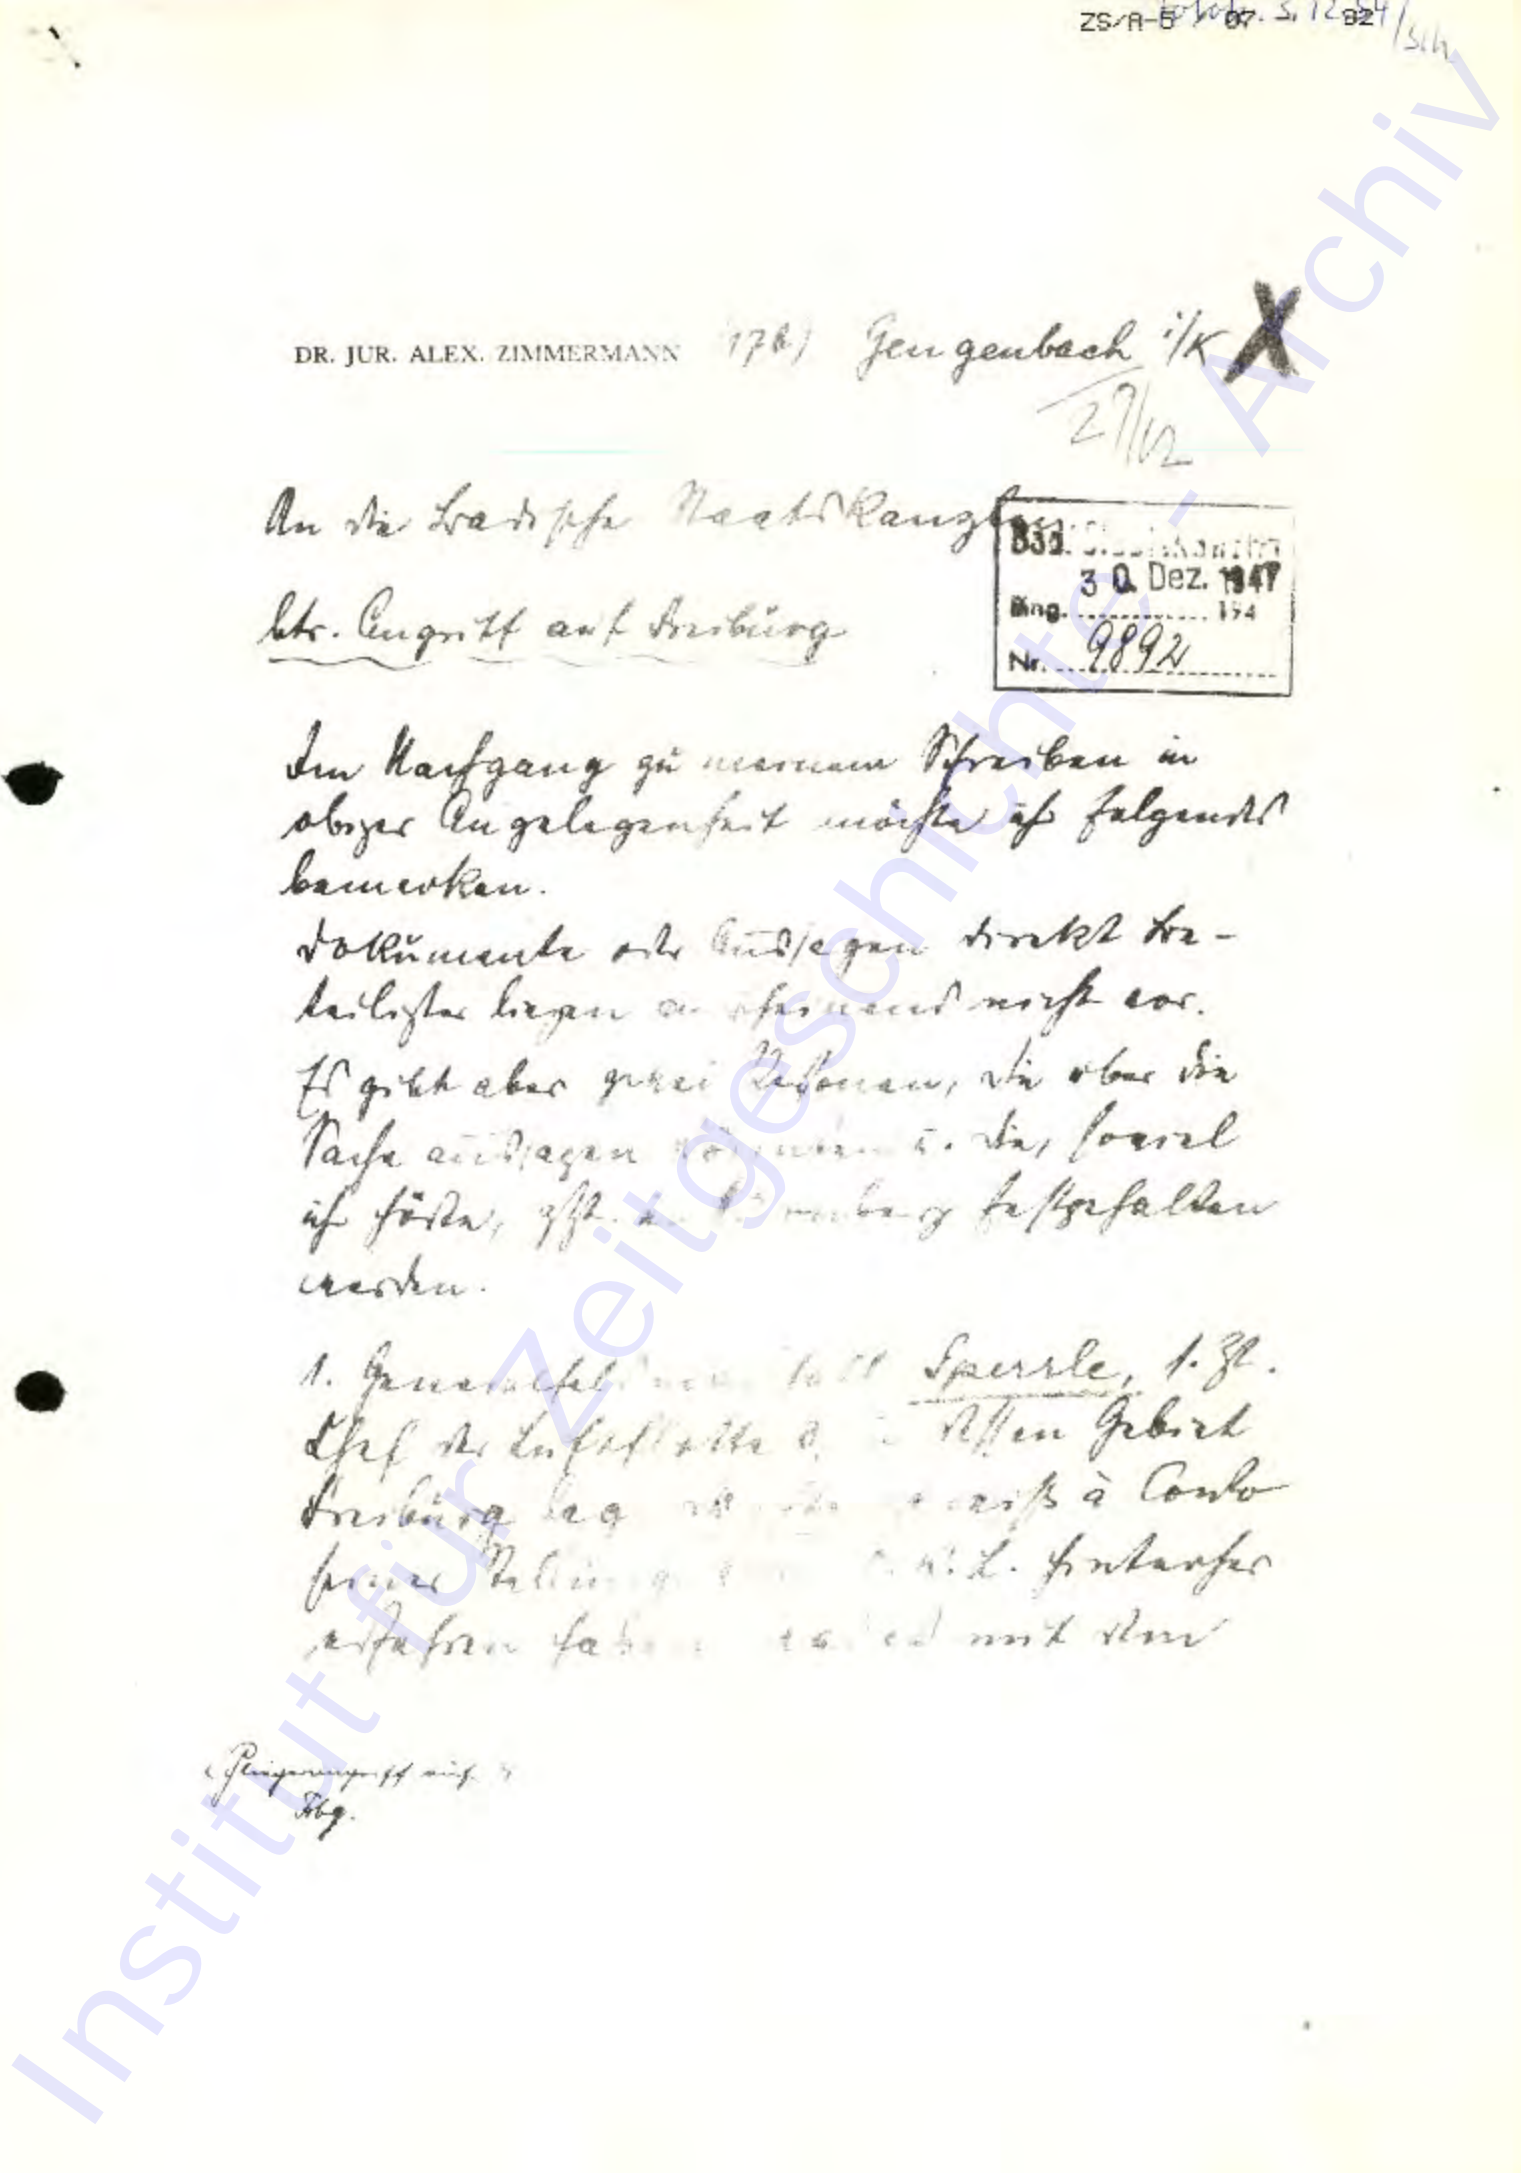 ZS/A-5 07 82
DR. JUR. ALEX. ZIMMERMANN (17b) Gengenbach i/K X
27/12
An die Badische Staatskanzlei
Bad. Staatskanzlei
30. Dez. 1947
Eing. 194
Nr. 9892
btr. Angriff auf Freiburg
Im Nachgang zu meinem Schreiben in
obiger Angelegenheit möchte ich folgendes
bemerken.
Dokumente oder Aussagen direkt Be-
teiligter liegen anscheinend nicht vor.
Es gibt aber zwei Personen, die über die
Sache aussagen könnten u. die, soviel
ich hörte, zZt. in Nürnberg festgehalten
werden.
1. Generalfeldmarschall Sperrle, s. Zt.
Chef der Luftflotte 3, in dessen Gebiet
Freiburg lag
seiner Stellung O.K.L. hinterher
erfahren haben mit dem
Fliegerangriff auf
Fbg.
Institut für Zeitgeschichte - Archiv